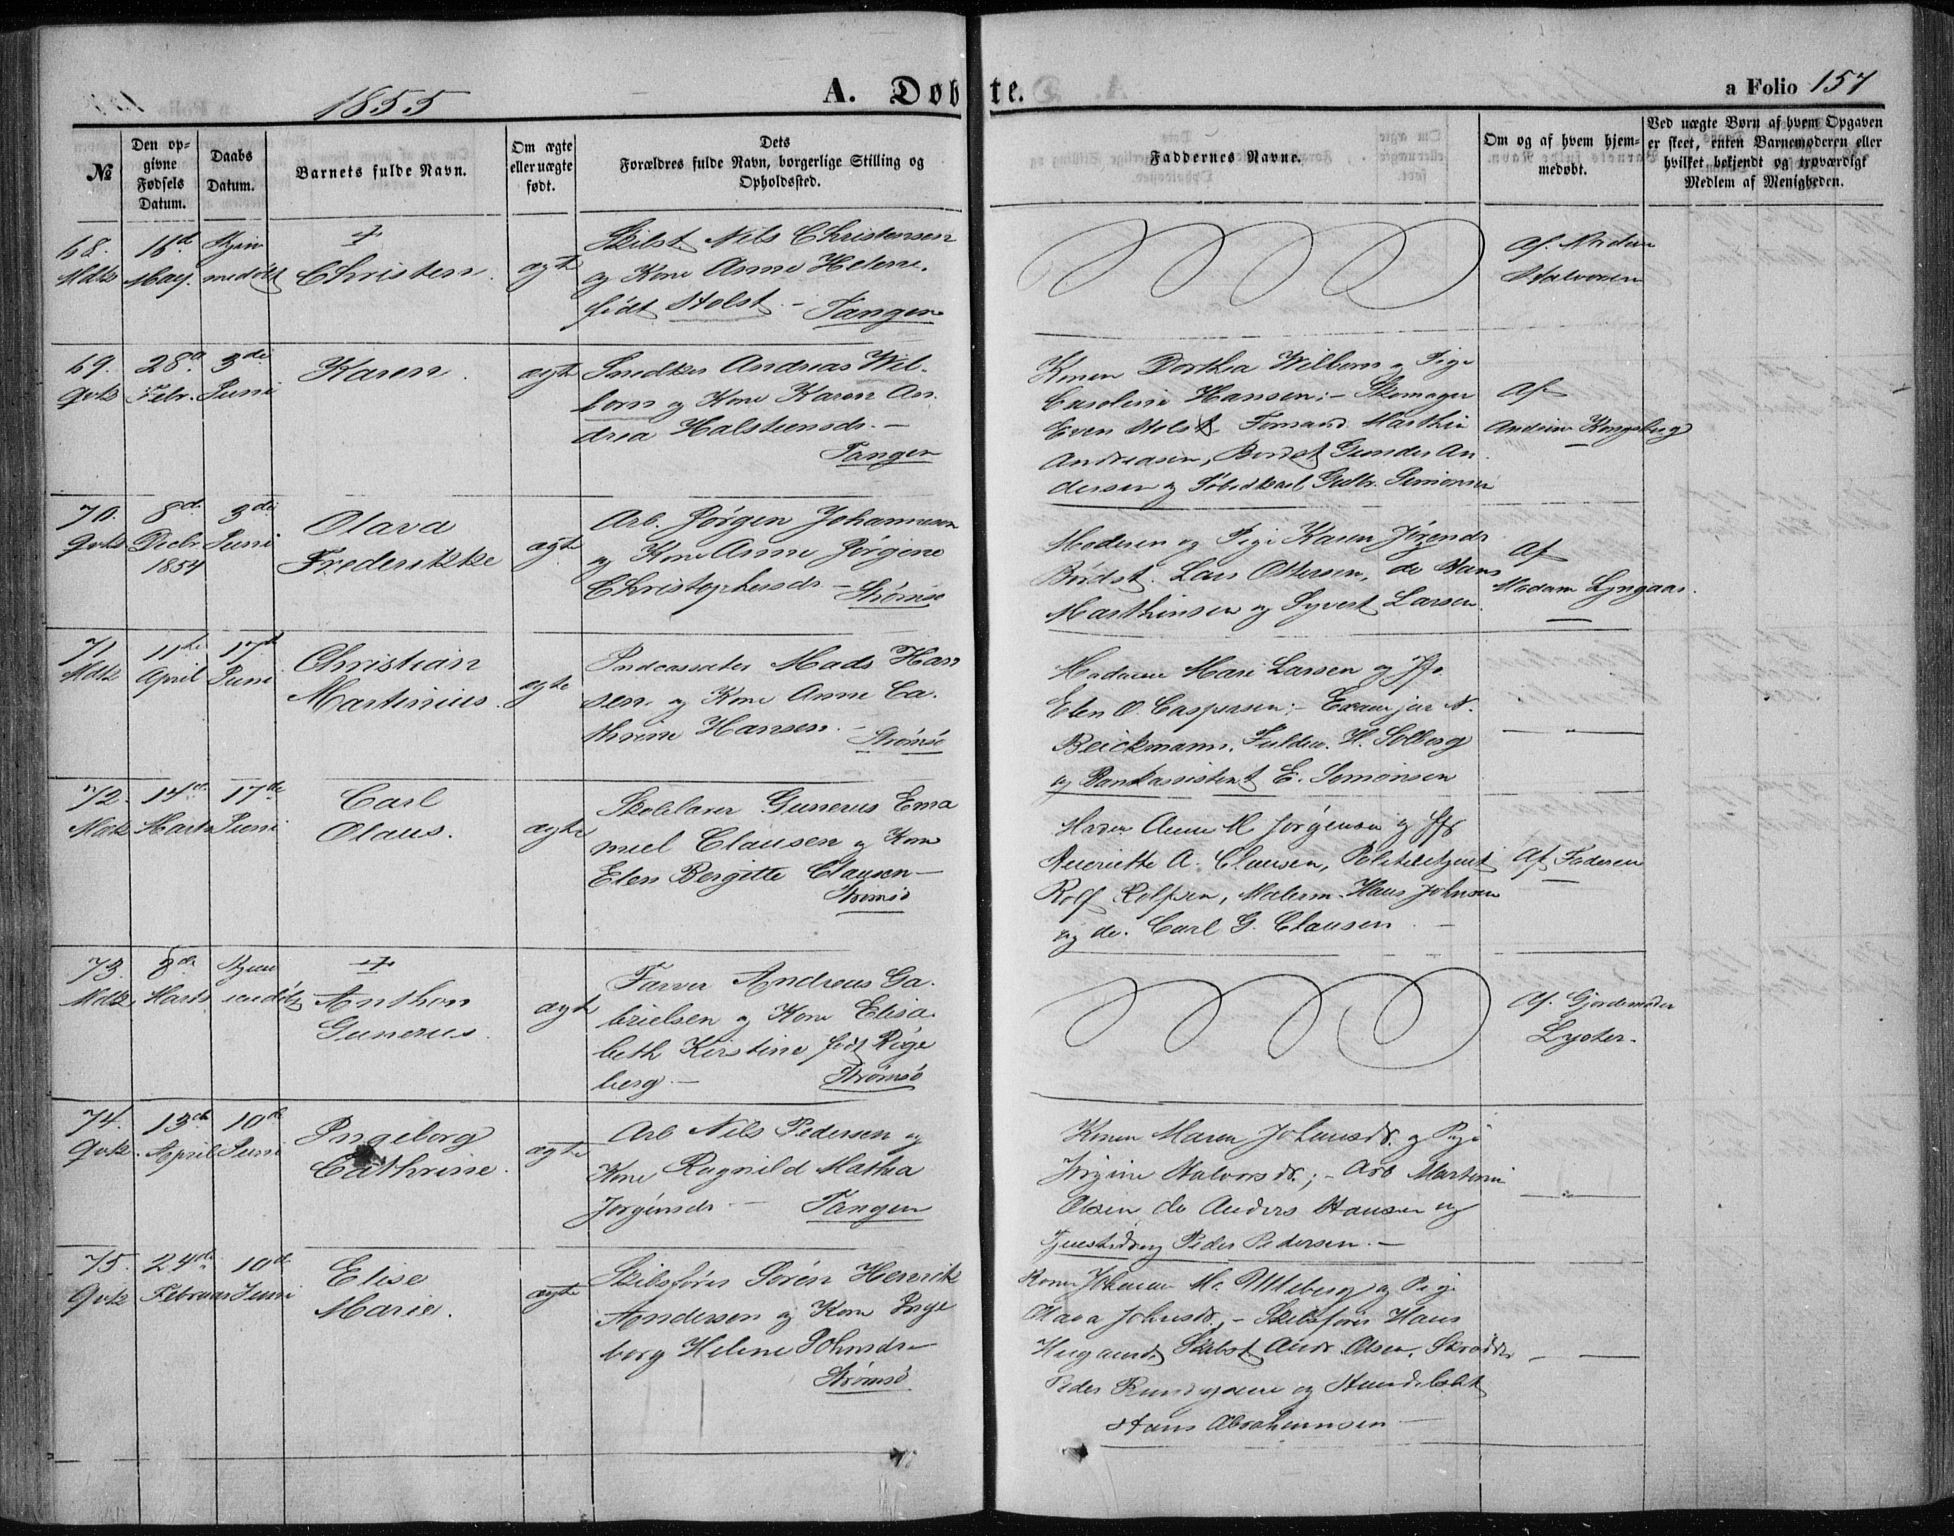 1855
A. Døbte.
a Folio 157
№
Den op-
givne
Fødsels
Datum.
Daabs
Datum.
Barnets fulde Navn.
Om ægte
eller uægte
født.
Dets
Forældres fulde Navn, borgerlige Stilling og
Opholdssted.
Faddernes Navne.
Om og af hvem hjem-
medøbt.
Ved uægte Børn af hvem Opgaven
er skeet, enten Barnemoderen eller
hvilket bekjendt og troværdigt
Medlem af Menigheden.
68.
Mdk
16d
May.
Hjem
medøbt
+
Christen.
ægte
Skibst Nils Christensen
og Kone Anne Helene,
født Holst. - Tangen
Af
Halvorsen
69.
Qvk
28d
Febr.
3die
Juni
Karen.
ægte
Snedker Andreas Wil-
born og Kone Karen An-
drea Halstensdr. -
Tangen
Konen Dorthea Wilborn og Pige
Caroline Hansen; - Skomager
Even Holst Formand Marthin
Andreasen, Bordst Gunder An-
dersen og Gulbr. Simonsen
Af
Kongsberg
70.
Qvk
8d
Decbr
1854
3die
Juni
Olava
Frederikke
ægte
Arb. Jørgen Johannesen
og Kone Anne Jørgine
Christophersdr - Strømsø
Moderen og Pige Karen Jørgensdr
Bordst. Lars Ottersen, do Hans
Marthinsen og Syvert Larsen.
Af
Madam Lyngaas.
71.
Mdk
11te
April
17d
Juni
Christian
Martinius.
ægte
Mads Han
sen. og Kone Anne Ca-
thrine Hansen - Strømsø
Madame Mari Larsen og Jfr.
Elen O. Caspersen; - Exam jur N.
Beickmann, H. Solberg
og Bankassistent E. Simonsen
72.
Mdk
14de
Marts
17de
Juni
Carl
Olaus.
ægte
Skolelærer Gunerus Ema
nuel Clausen og Kone
Elen Bergitte Clausen -
Strømsø
Anne M Jørgensen og Jfr
Henriette A. Clausen, Politibetjent
Rolf Rolfsen, Malerm. Hans Johnsen
og do. Carl G. Clausen
Af Faderen
73.
Mdk.
8de
Marts
Hjem
medøbt
+
Anthon
Gunerus.
ægte
Farver Andreas Ga-
brielsen og Kone Elisa-
beth Kirstine født Rige
berg. - Strømsø
Af. Gjordemoder
Lyster.
74.
Qvk.
13de
April
10de
Juni
Ingeborg
Cathrine.
ægte
Arb Nils Pedersen og
Kone Ragnild Mathea
Jørginsdr - Tangen
Konen Maren Johansdr. og Pige
Jørgine Halvorsdr.; - Arb Martin
Olsen do Anders Hansen og
Peder Pedersen. -
75.
Qvk
24de
Februar
10de
Juni
Elise
Marie.
ægte
Skibsfører Søren Henrik
Andersen og Kone Inge
borg Helene Johnsdr -
Strømsø
Kone Johanne M. Ulleberg og Pige
Olava Johnsdr; - Skibsfører Hans
Heigaard, Skibst Andr. Olsen, Skrædder
Peder og
Hans Abrahamsen -